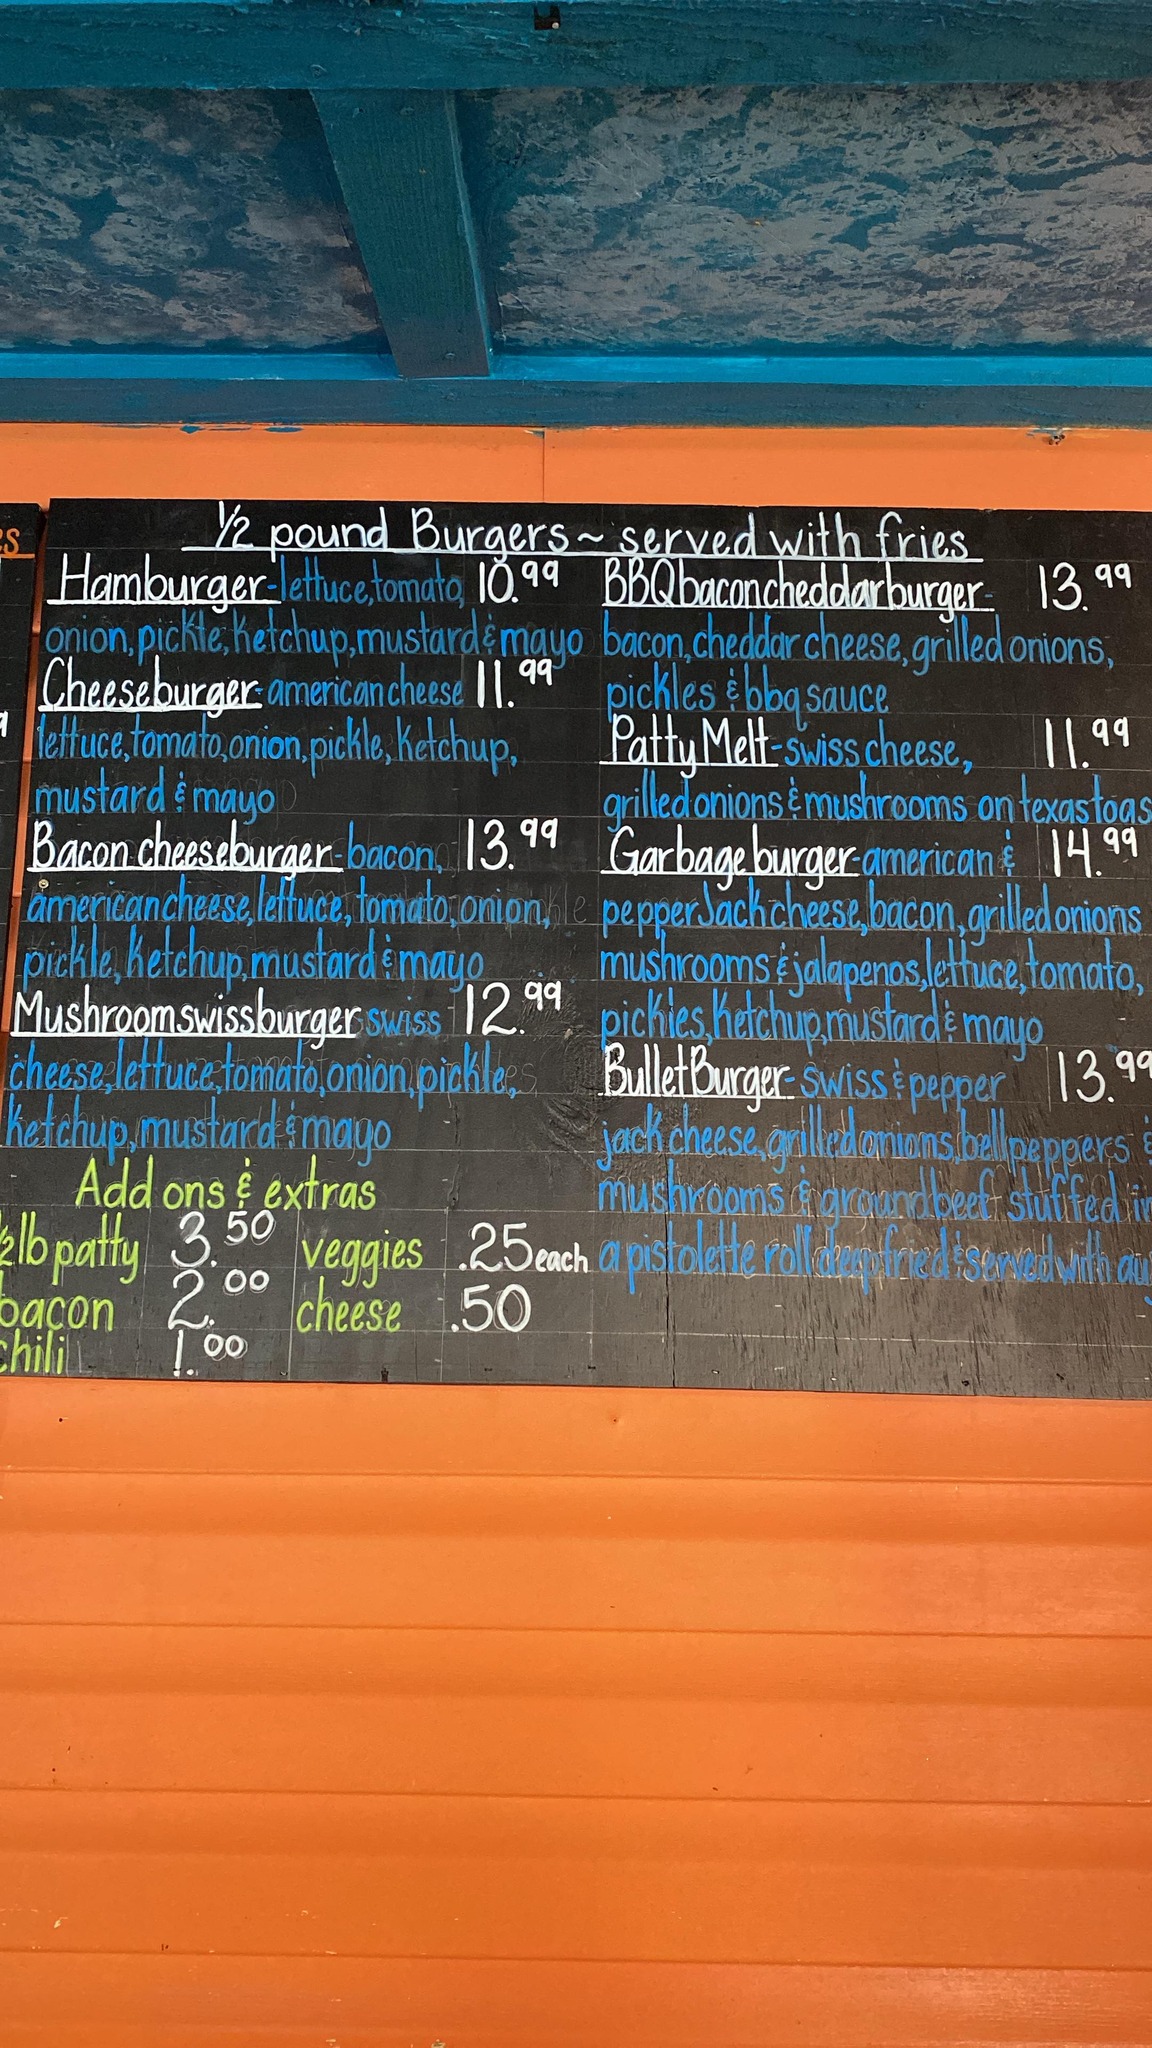 es
½ pound Burgers ~ served with fries
Hamburger - lettuce, tomato, 10.99
onion, pickle, ketchup, mustard & mayo
Cheeseburger - american cheese 11.99
lettuce, tomato, onion, pickle, ketchup,
mustard & mayo
Bacon cheeseburger - bacon, 13.99
american cheese, lettuce, tomato, onion,
pickle, ketchup, mustard & mayo
Mushroom swiss burger swiss 12.99
cheese, lettuce, tomato, onion, pickle,
ketchup, mustard & mayo
Add ons & extras
½ lb patty 3.50 veggies .25 each
bacon 2.00 cheese .50
chili 1.00
BBQ bacon cheddar burger - 13.99
bacon, cheddar cheese, grilled onions,
pickles & bbq sauce
Patty Melt - swiss cheese, 11.99
grilled onions & mushrooms on texas toas
Garbage burger - american & 14.99
pepper Jack cheese, bacon, grilled onions
mushrooms & jalapenos, lettuce, tomato,
pickles, ketchup, mustard & mayo
Bullet Burger - swiss & pepper 13.99
jack cheese, grilled onions, bell peppers &
mushrooms & ground beef stuffed in
a pistolette roll deep fried & served with au